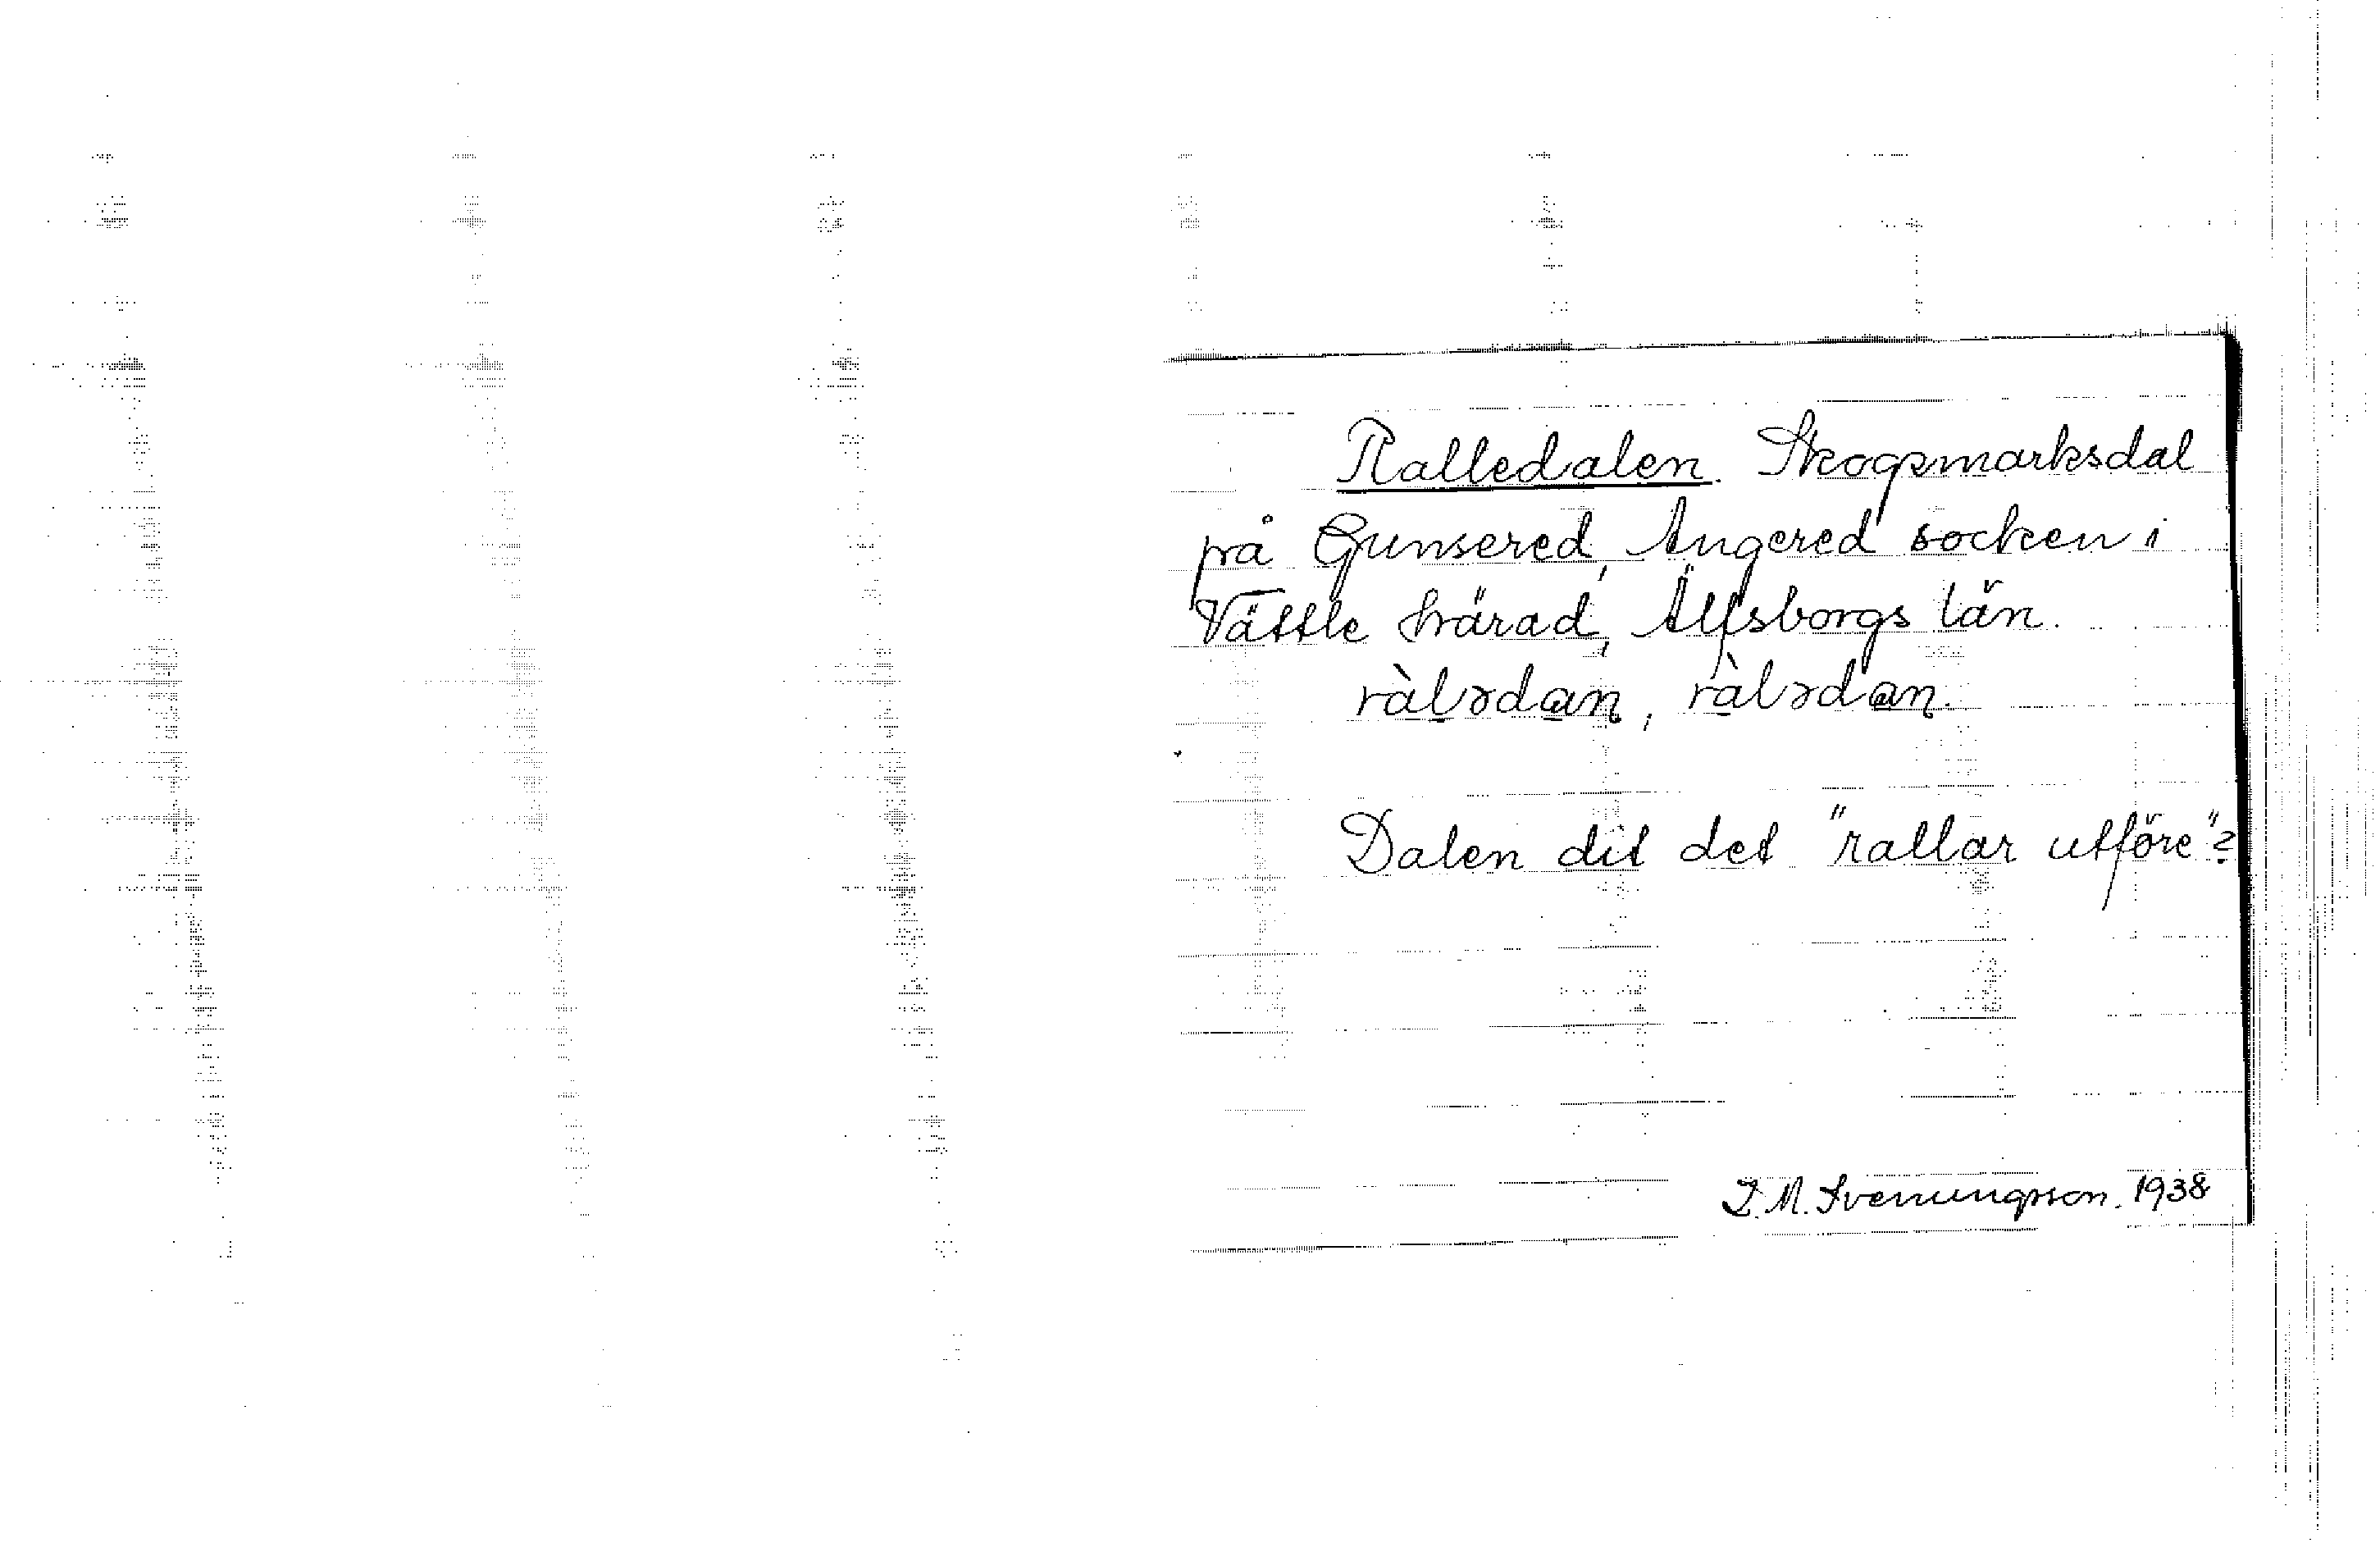 Ralledalen. Skogsmarksdal
på Gunsered, Angered socken i
Vättle härad, Älfsborgs län.
ràlədan, ràlədan.
Dalen dit det "rallar utföre"?
I. M. Svenungsson. 1938